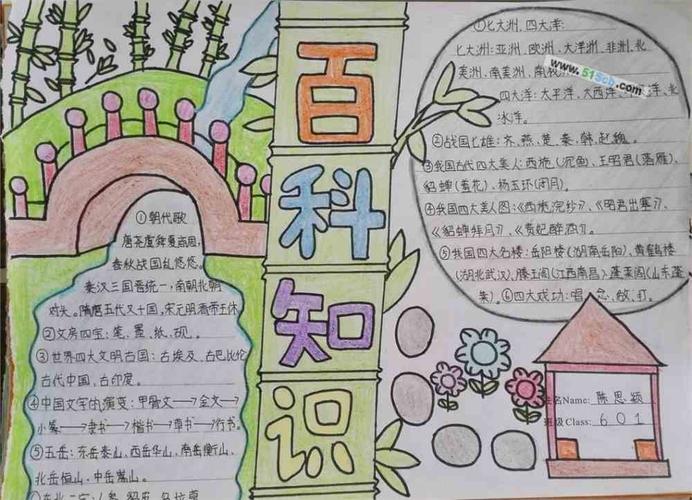 百科知识
①朝代歌
唐尧虞舜夏商周，
春秋战国乱悠悠。
秦汉三国晋统一，南朝北朝
对头。隋唐五代又十国，宋元明清帝王休
②文房四宝：笔、墨、纸、砚。
③世界四大文明古国：古埃及、古巴比伦
古代中国、古印度。
④中国文字的演变：甲骨文→金文→
小篆→隶书→楷书→草书→行书。
⑤五岳：东岳泰山，西岳华山，南岳衡山，
北岳恒山，中岳嵩山。
①七大洲、四大洋：
七大洲：亚洲、欧洲、大洋洲、非洲、北
美洲、南美洲、南极
www.515cb.com
四大洋：太平洋、大西洋、洋、北
冰洋。
②战国七雄：齐、燕、楚、秦、韩、赵、魏。
③我国古代四大美人：西施（沉鱼）、王昭君（落雁）、
貂蝉（羞花）、杨玉环（闭月）。
④我国四大美人图：《西施浣纱》、《昭君出塞》、
《貂蝉拜月》、《贵妃醉酒》。
⑤我国四大名楼：岳阳楼（湖南岳阳）、黄鹤楼
（湖北武汉）、滕王阁（江西南昌）、蓬莱阁（山东蓬
莱）。⑥四大戏功：唱、念、做、打。
姓名Name：陈思颖
班级Class：601